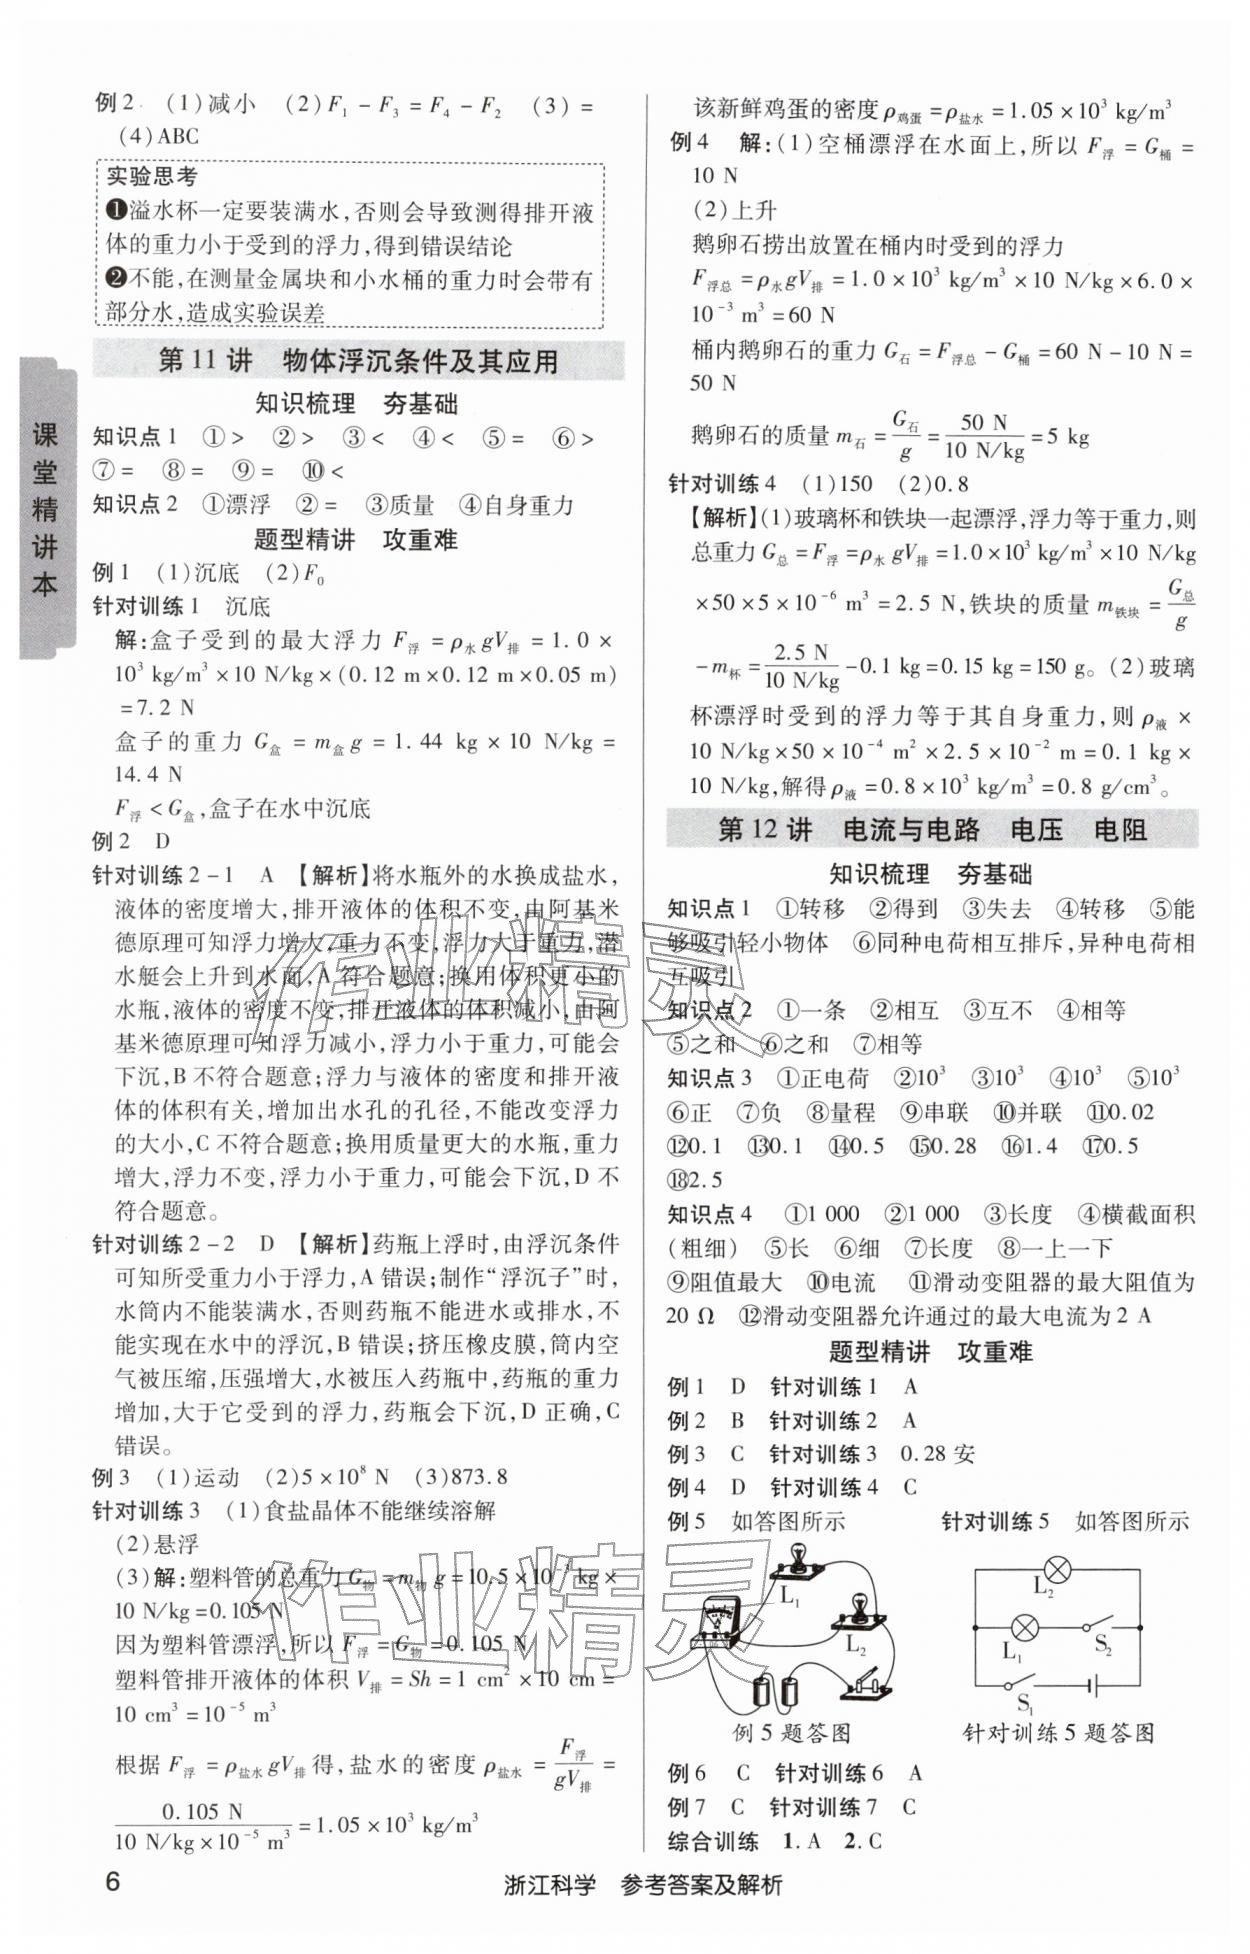 例2　(1)减小　(2)F₁－F₃＝F₄－F₂　(3)＝
(4)ABC
实验思考
❶溢水杯一定要装满水,否则会导致测得排开液
体的重力小于受到的浮力,得到错误结论
❷不能,在测量金属块和小水桶的重力时会带有
部分水,造成实验误差
第 11 讲　物体浮沉条件及其应用
知识梳理　夯基础
知识点1　①>　②>　③<　④<　⑤=　⑥>
⑦=　⑧=　⑨=　⑩<
知识点2　①漂浮　②=　③质量　④自身重力
题型精讲　攻重难
例1　(1)沉底　(2)F₀
针对训练1　沉底
解:盒子受到的最大浮力 F浮＝ρ水gV排＝1.0×
10³ kg/m³×10 N/kg×(0.12 m×0.12 m×0.05 m)
＝7.2 N
盒子的重力 G盒＝m盒g＝1.44 kg×10 N/kg＝
14.4 N
F浮<G盒,盒子在水中沉底
例2　D
针对训练2－1　A　【解析】将水瓶外的水换成盐水,
液体的密度增大,排开液体的体积不变,由阿基米
德原理可知浮力增大,重力不变,浮力大于重力,潜
水艇会上升到水面,A 符合题意;换用体积更小的
水瓶,液体的密度不变,排开液体的体积减小,由阿
基米德原理可知浮力减小,浮力小于重力,可能会
下沉,B 不符合题意;浮力与液体的密度和排开液
体的体积有关,增加出水孔的孔径,不能改变浮力
的大小,C 不符合题意;换用质量更大的水瓶,重力
增大,浮力不变,浮力小于重力,可能会下沉,D 不
符合题意。
针对训练2－2　D　【解析】药瓶上浮时,由浮沉条件
可知所受重力小于浮力,A 错误;制作“浮沉子”时,
水筒内不能装满水,否则药瓶不能进水或排水,不
能实现在水中的浮沉,B 错误;挤压橡皮膜,筒内空
气被压缩,压强增大,水被压入药瓶中,药瓶的重力
增加,大于它受到的浮力,药瓶会下沉,D 正确,C
错误。
例3　(1)运动　(2)5×10⁸ N　(3)873.8
针对训练3　(1)食盐晶体不能继续溶解
(2)悬浮
(3)解:塑料管的总重力 G物＝m物g＝10.5×10⁻³ kg×
10 N/kg＝0.105 N
因为塑料管漂浮,所以 F浮＝G物＝0.105 N
塑料管排开液体的体积 V排＝Sh＝1 cm²×10 cm＝
10 cm³＝10⁻⁵ m³
根据 F浮＝ρ盐水gV排 得,盐水的密度 ρ盐水＝F浮/gV排＝
0.105 N/(10 N/kg×10⁻⁵ m³)＝1.05×10³ kg/m³
该新鲜鸡蛋的密度 ρ鸡蛋＝ρ盐水＝1.05×10³ kg/m³
例4　解:(1)空桶漂浮在水面上,所以 F浮＝G桶＝
10 N
(2)上升
鹅卵石捞出放置在桶内时受到的浮力
F浮总＝ρ水gV排＝1.0×10³ kg/m³×10 N/kg×6.0×
10⁻³ m³＝60 N
桶内鹅卵石的重力 G石＝F浮总－G桶＝60 N－10 N＝
50 N
鹅卵石的质量 m石＝G石/g＝50 N/(10 N/kg)＝5 kg
针对训练4　(1)150　(2)0.8
【解析】(1)玻璃杯和铁块一起漂浮,浮力等于重力,则
总重力 G总＝F浮＝ρ水gV排＝1.0×10³ kg/m³×10 N/kg
×50×5×10⁻⁶ m³＝2.5 N,铁块的质量 m铁块＝G总/g
－m杯＝2.5 N/(10 N/kg)－0.1 kg＝0.15 kg＝150 g。(2)玻璃
杯漂浮时受到的浮力等于其自身重力,则 ρ液×
10 N/kg×50×10⁻⁴ m²×2.5×10⁻² m＝0.1 kg×
10 N/kg,解得 ρ液＝0.8×10³ kg/m³＝0.8 g/cm³。
第 12 讲　电流与电路　电压　电阻
知识梳理　夯基础
知识点1　①转移　②得到　③失去　④转移　⑤能
够吸引轻小物体　⑥同种电荷相互排斥,异种电荷相
互吸引
知识点2　①一条　②相互　③互不　④相等
⑤之和　⑥之和　⑦相等
知识点3　①正电荷　②10³　③10³　④10³　⑤10³
⑥正　⑦负　⑧量程　⑨串联　⑩并联　⑪0.02
⑫0.1　⑬0.1　⑭0.5　⑮0.28　⑯1.4　⑰0.5
⑱2.5
知识点4　①1 000　②1 000　③长度　④横截面积
(粗细)　⑤长　⑥细　⑦长度　⑧一上一下
⑨阻值最大　⑩电流　⑪滑动变阻器的最大阻值为
20 Ω　⑫滑动变阻器允许通过的最大电流为 2 A
题型精讲　攻重难
例1　D　针对训练1　A
例2　B　针对训练2　A
例3　C　针对训练3　0.28 安
例4　D　针对训练4　C
例5　如答图所示　针对训练5　如答图所示
L₁
L₂
A
例 5 题答图
L₂
L₁
S₂
S₁
针对训练 5 题答图
例6　C　针对训练6　A
例7　C　针对训练7　C
综合训练　1. A　2. C
课堂精讲本
作业精灵
作业精灵
6
浙江科学　参考答案及解析